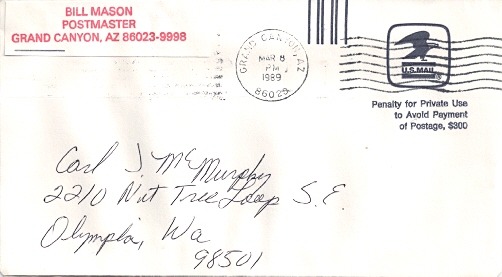 BILL MASON
POSTMASTER
GRAND CANYON, AZ 86023-9998
GRAND CANYON, AZ
MAR 8
PM
1989
86023
U.S.MAIL
Penalty for Private Use
to Avoid Payment
of Postage, $300
Carl J. McMurphy
2210 Nut Tree Loop S.E.
Olympia, Wa
98501